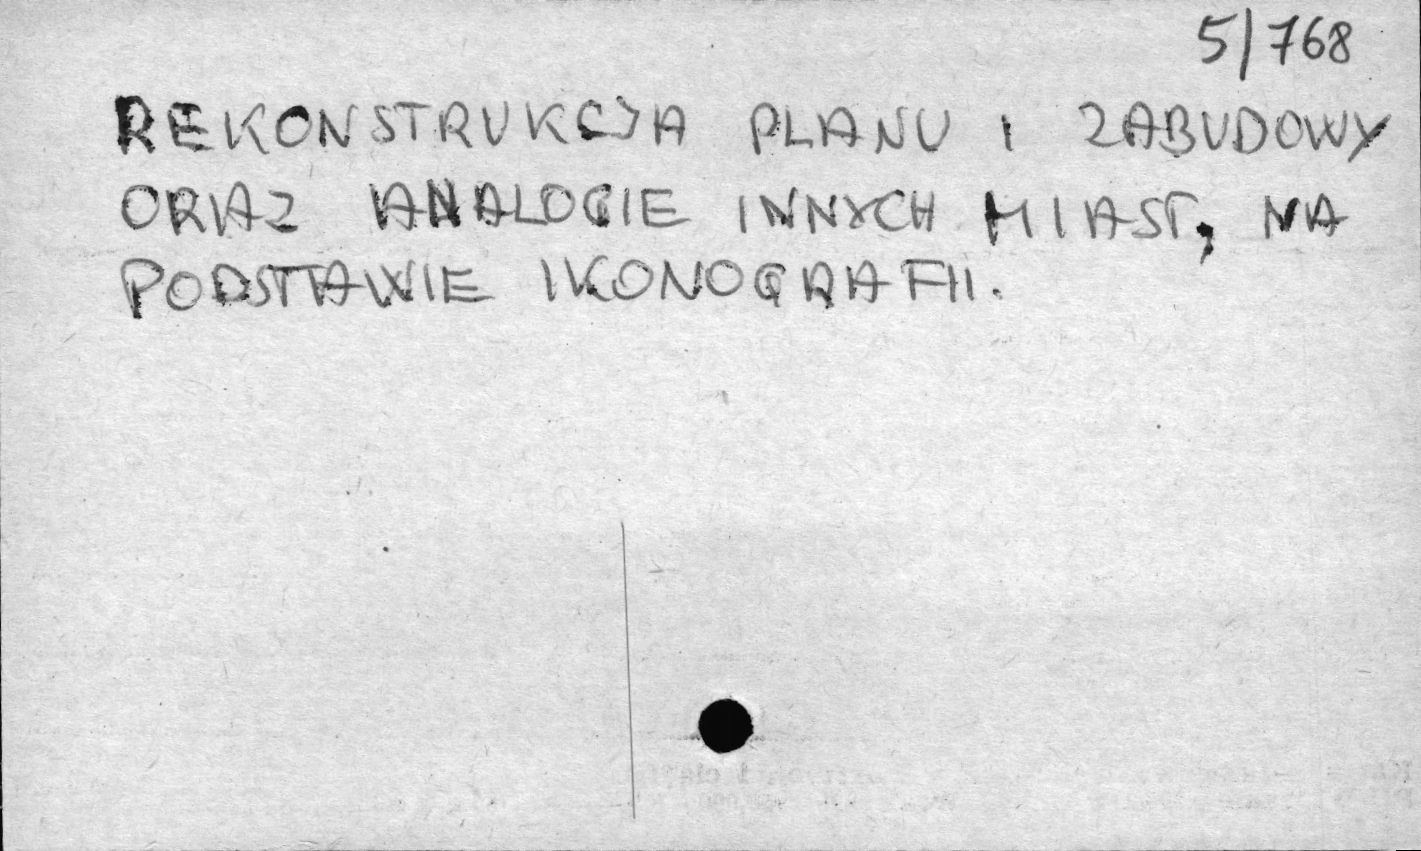 5/768
REKONSTRUKCJA PLANU I ZABUDOWY
ORAZ ANALOGIE INNYCH MIAST, NA
PODSTAWIE IKONOGRAFII.